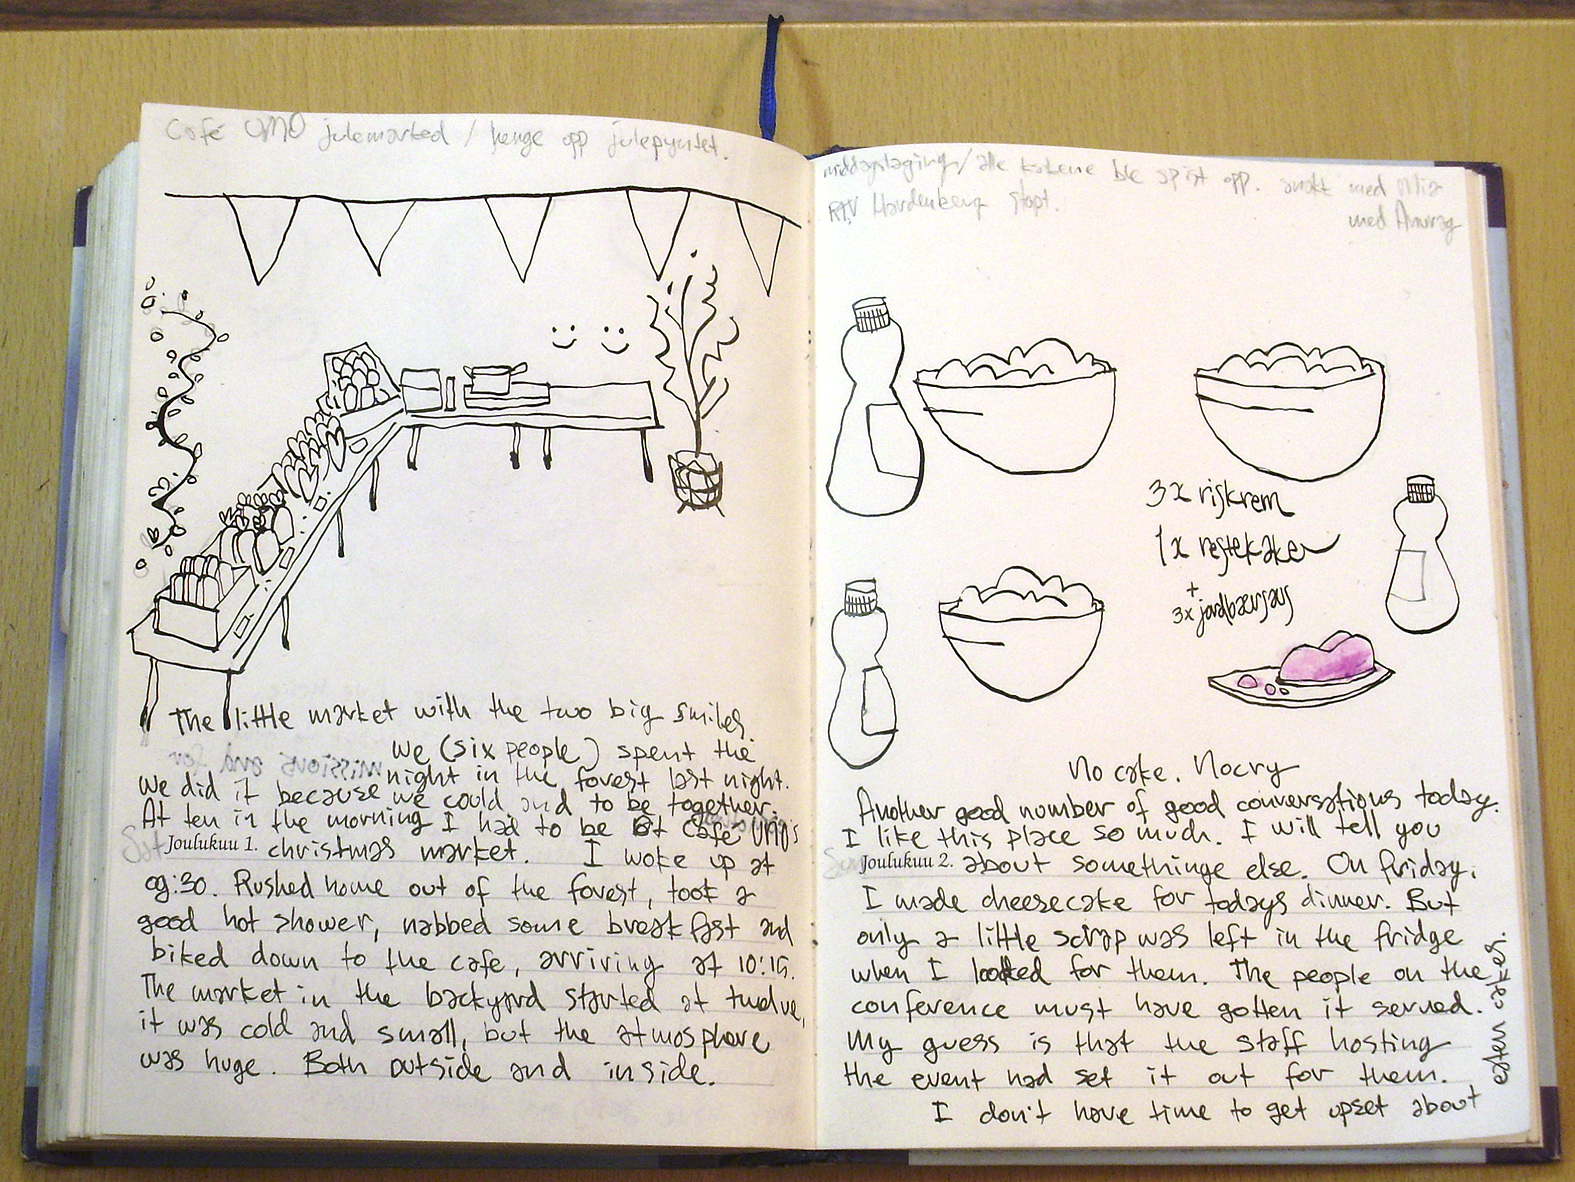 Café UMO julemarked / henge opp julepyntet.
The little market with the two big smiles.
We (six people) spent the
night in the forest last night.
We did it because we could and to be together.
At ten in the morning I had to be at Café UMO's
Joulukuu 1. christmas market. I woke up at
09:30. Rushed home out of the forest, took a
good hot shower, nabbed some breakfast and
biked down to the cafe, arriving at 10:15.
The market in the backyard started at twelve,
it was cold and small, but the atmosphere
was huge. Both outside and inside.
middagslaging / alle kakene ble spist opp. snakt med Mia
RAV Hardenberg stopt. med Anurag
3x riskrem
1x restekake
+
3x jordbærsaus
No cake. No cry
Another good number of good conversations today.
I like this place so much. I will tell you
Joulukuu 2. about somethinge else. On friday,
I made cheesecake for todays dinner. But
only a little scrap was left in the fridge
when I looked for them. The people on the
conference must have gotten it served.
My guess is that the staff hosting
the event had set it out for them.
I don't have time to get upset about
eaten cakes.